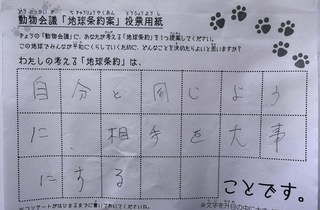 動物会議「地球条約案」投票用紙
きょうの「動物会議」に、あなたが考える「地球条約」を1つ提案してください。
この地球でみんなが平和にくらしていくために、どんなことを決めたらよいと思いますか?
わたしの考える「地球条約」は、
自分と同じよう
に、相手を大事
にする
ことです。